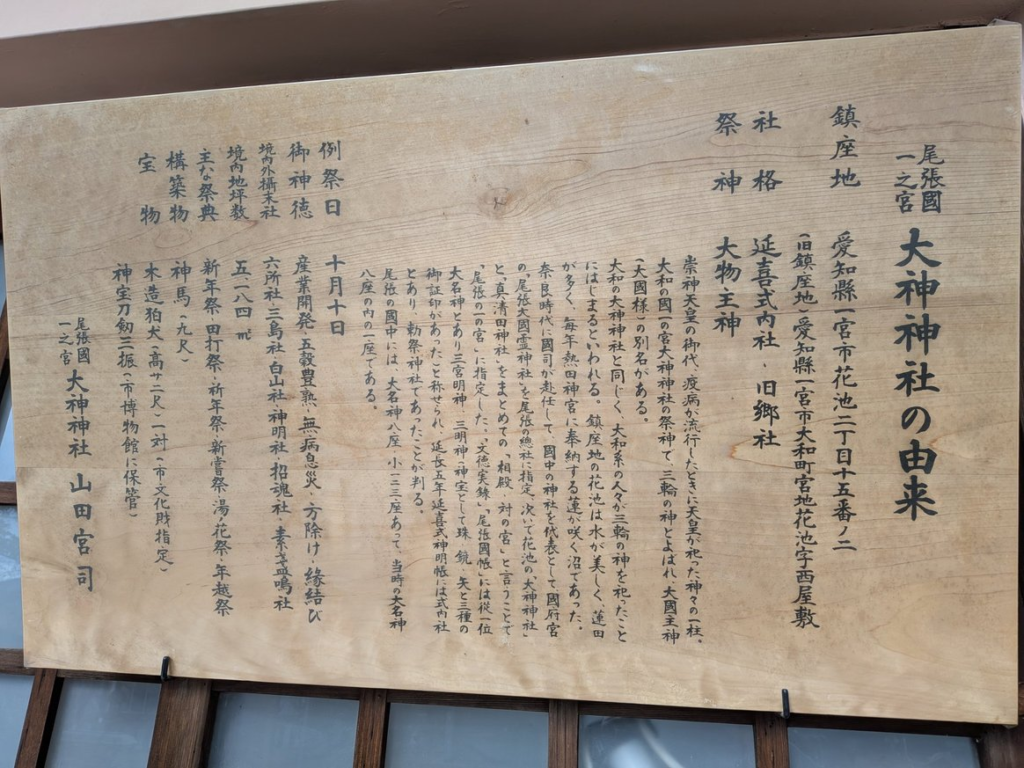 尾張國
一之宮
大神神社の由来
鎮座地 愛知縣一宮市花池二丁目十五番ノ二
(旧鎮座地)愛知縣一宮市大和町宮地花池字西屋敷
社格 延喜式内社・旧郷社
祭神 大物主神
崇神天皇の御代、疫病が流行したときに天皇が祀った神々の一柱。
大和の國一の宮大神神社の祭神で、三輪の神とよばれ、大國主神
(大國様)の別名がある。
大和の大神神社と同じく、大和系の人々が三輪の神を祀ったこと
にはじまるといわれる。鎮座地の花池は水が美しく、蓮田
が多く、毎年熱田神宮に奉納する蓮が咲く沼であった。
奈良時代に國司が赴任して、國中の神社を代表として國府宮
の「尾張大國霊神社」を尾張の總社に指定、次いで花池の「大神神社」
と「真清田神社」をまとめての「相殿・対の宮」と言うことで
「尾張の一の宮」に指定した。「文徳実録」「尾張國帳」には従一位
大名神とあり三宮明神・三明神「神宝として珠・鏡・矢と三種の
御証印があったこと称せられ、延長五年延喜式神明帳には式内社
とあり、勅祭神社であったことが判る。
尾張の國中には、大名神八座・小二三座あって、当時の大名神
八座の内の一座である。
例祭日 十月十日
御神徳 産業開発・五穀豊熟・無病息災・方除け・縁結び
境内外攝末社 六所社・三島社・白山社・神明社・招魂社・素盞嗚社
境内地坪数 五一八四㎡
主な祭典 新年祭・田打祭・祈年祭・新嘗祭・湯ノ花祭・年越祭
構築物 神馬(九尺)
木造狛犬(高サ二尺)一対(市文化財指定)
宝物 神宝刀劔三振(市博物館に保管)
尾張國
一之宮
大神神社 山田宮司